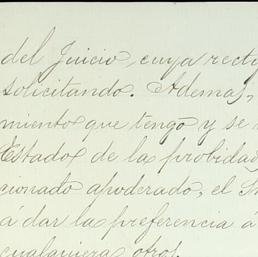 del Juicio, cuya recti
solicitando. Ademas,
miento que tengo y se
Estados de la probidad
cionado apoderado, el
á dar la preferencia á
cualquiera otro.